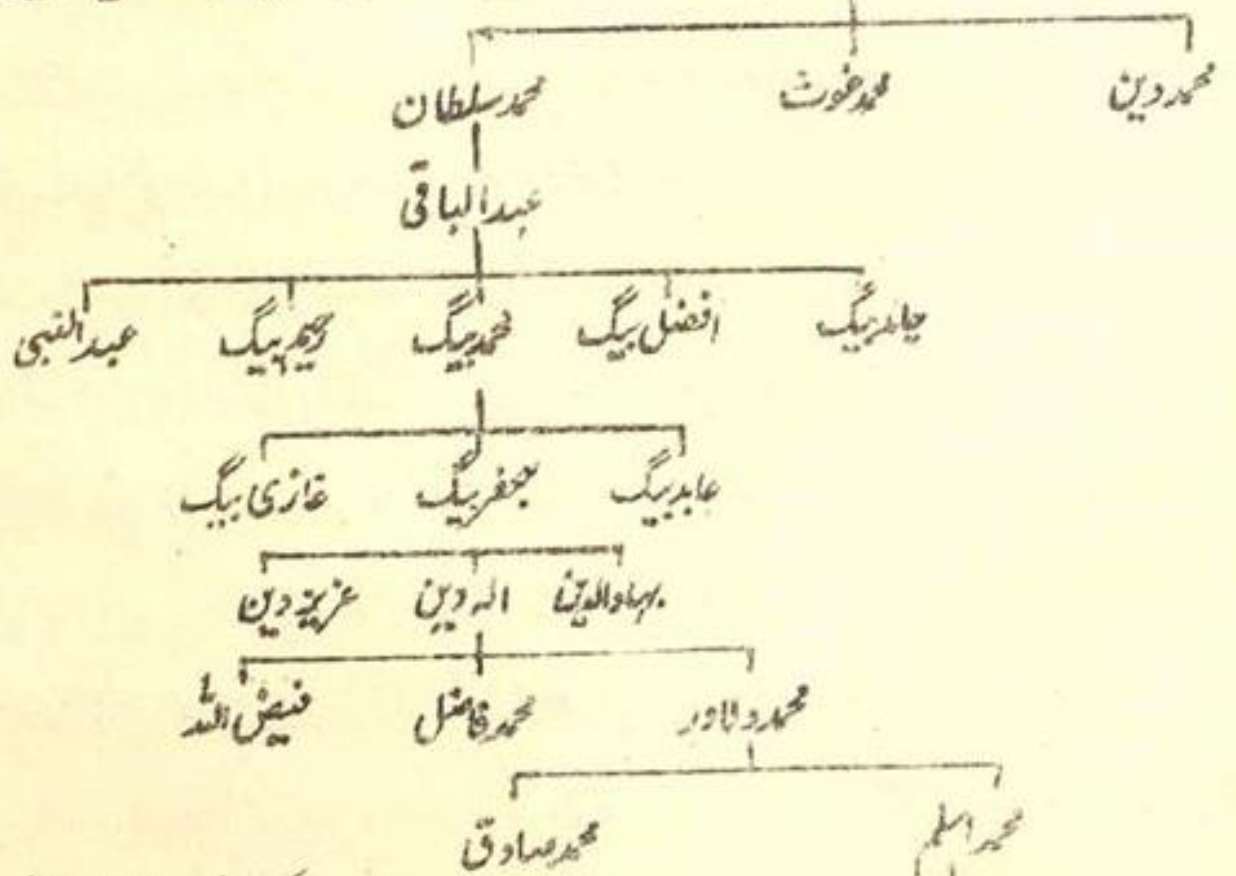 محمد دین محمد غوث محمد سلطان
عبدالباقی
افضل بیگ محمد بیگ رحیم بیگ عبدالنبی
عابد بیگ جعفر بیگ غازی بیگ
بہاوالدین الہ دین عزیز دین
محمد دلاور محمد فاضل فیض اللہ
محمد اسلم محمد صادق